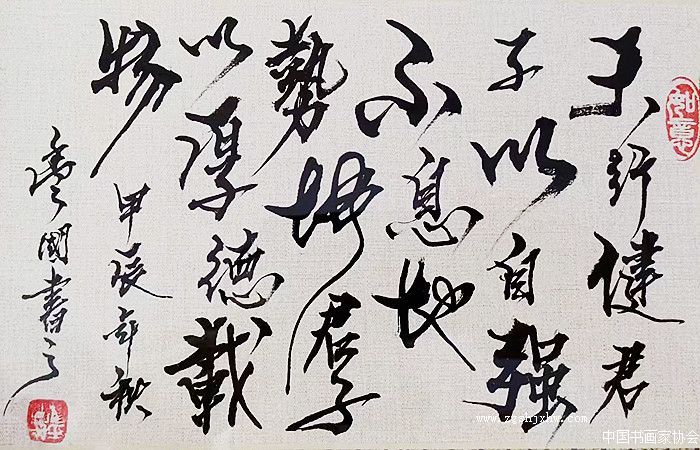 天行健君
子以自強
不息地
勢坤君子
以厚德載
物
甲辰年秋
國書之
如意
www.zgshjxhw.com
中国书画家协会